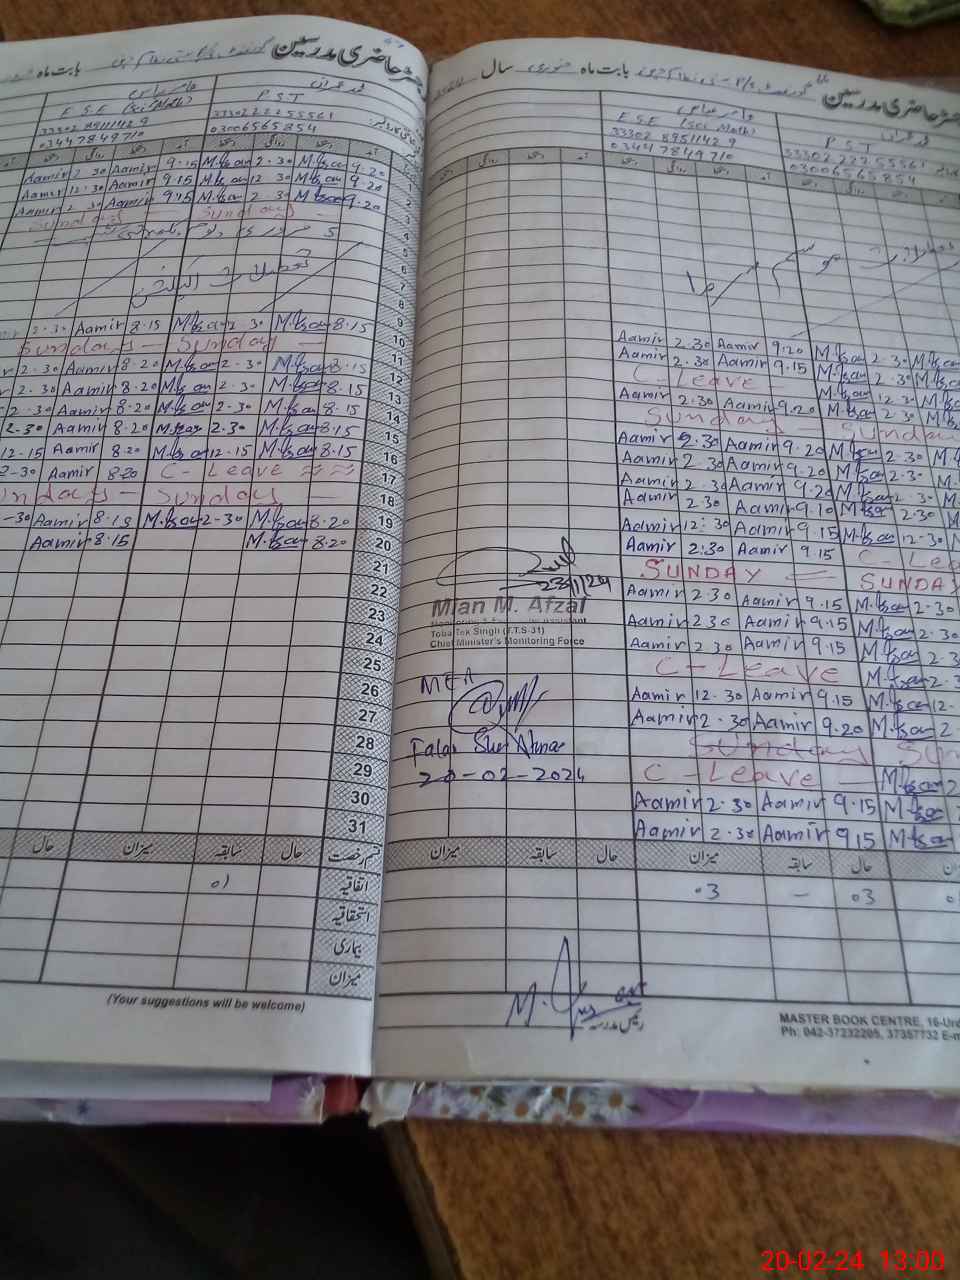 رجسٹر حاضری مدرسین
P S T
E S E (Sci Math)
33302 2225556 1
33302 8951142 9
03006565854
03447849710
Aamir 2.30 Aamir 9.15 M.Ihsan 2.30 M.Ihsan 9.20
Aamir 12.30 Aamir 9.15 M.Ihsan 12.30 M.Ihsan 9.20
Aamir 2.30 Aamir 9.15 M.Ihsan 2.30 M.Ihsan 9.20
Sunday — Sunday —
تعطیلات الیکشن
2.30 Aamir 8.15 M.Ihsan 2.30 M.Ihsan 8.15
Sunday — Sunday —
2.30 Aamir 8.20 M.Ihsan 2.30 M.Ihsan 8.15
2.30 Aamir 8.20 M.Ihsan 2.30 M.Ihsan 8.15
2.30 Aamir 8.20 M.Ihsan 2.30 M.Ihsan 8.15
2.30 Aamir 8.20 M.Ihsan 2.30 M.Ihsan 8.15
12.15 Aamir 8.20 M.Ihsan 12.15 M.Ihsan 8.15
2.30 Aamir 8.20 C - Leave
Sunday — Sunday —
2.30 Aamir 8.15 M.Ihsan 2.30 M.Ihsan 8.20
Aamir 8.15 M.Ihsan 8.20
1
2
3
4
5
6
7
8
9
10
11
12
13
14
15
16
17
18
19
20
21
22
23
24
25
26
27
28
29
30
31
حال میزان سابقہ حال قسم رخصت
01 اتفاقیہ
استحقاقیہ
بیماری
میزان
(Your suggestions will be welcome)
رجسٹر حاضری مدرسین بابت ماہ جنوری سال
P S T
E S E (Sci Math)
33302 2225556 1
33302 8951142 9
03006565854
03447849710
تعطیلات موسم سرما
Aamir 2.30 Aamir 9.20 M.Ihsan 2.30
Aamir 2.30 Aamir 9.15 M.Ihsan 2.30
C - Leave — M.Ihsan 12.30
Aamir 2.30 Aamir 9.20 M.Ihsan 2.30
Sunday — Sunday
Aamir 2.30 Aamir 9.20 M.Ihsan 2.30
Aamir 2.30 Aamir 9.20 M.Ihsan 2.30
Aamir 2.30 Aamir 9.20 M.Ihsan 2.30
Aamir 2.30 Aamir 9.10 M.Ihsan 2.30
Aamir 12:30 Aamir 9.15 M.Ihsan 12.30
Aamir 2:30 Aamir 9.15 C - Lea
SUNDAY — SUNDAY
Aamir 2.30 Aamir 9.15 M.Ihsan 2.30
Aamir 2.30 Aamir 9.15 M.Ihsan 2.30
Aamir 2.30 Aamir 9.15 M.Ihsan 2.3
C - Leave M.Ihsan 2.3
Aamir 12.30 Aamir 9.15 M.Ihsan 12-
Aamir 2.30 Aamir 9.20 M.Ihsan 2
Sunday Sun
C - Leave — M.Ihsan 2
Aamir 2.30 Aamir 9.15 M.Ihsan
Aamir 2.30 Aamir 9.15 M.Ihsan
23/1/24
Mian M. Afzal
Monitoring & Evaluation Assistant
Toba Tek Singh (T.T.S-31)
Chief Minister's Monitoring Force
MEA
20-02-2024
میزان سابقہ حال میزان سابقہ حال
03 — 03
رئیس مدرسہ
MASTER BOOK CENTRE, 16-Urd
Ph: 042-37232205, 37357732 E-m
20-02-24 13:00